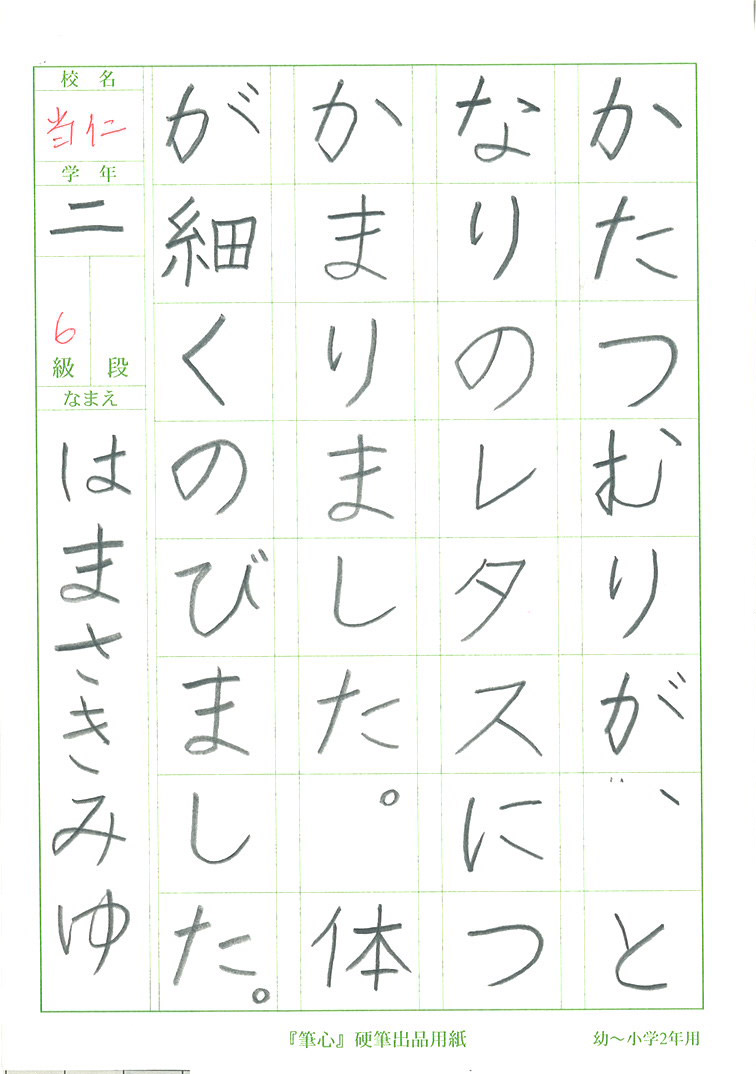 かたつむりが、と
なりのレタスにつ
かまりました。体
が細くのびました。
校名
当仁
学年
二
6
級
段
なまえ
はまさきみゆ
『筆心』硬筆出品用紙
幼〜小学2年用